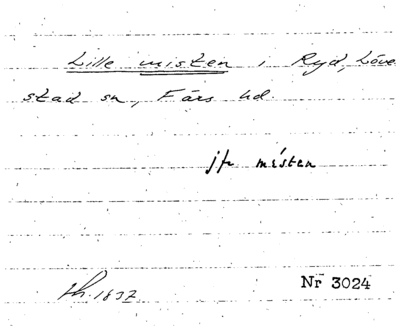 Lille misten i Ryd, Löve
stad sn, Färs hd.
jfr místen
th. 1837
Nr 3024